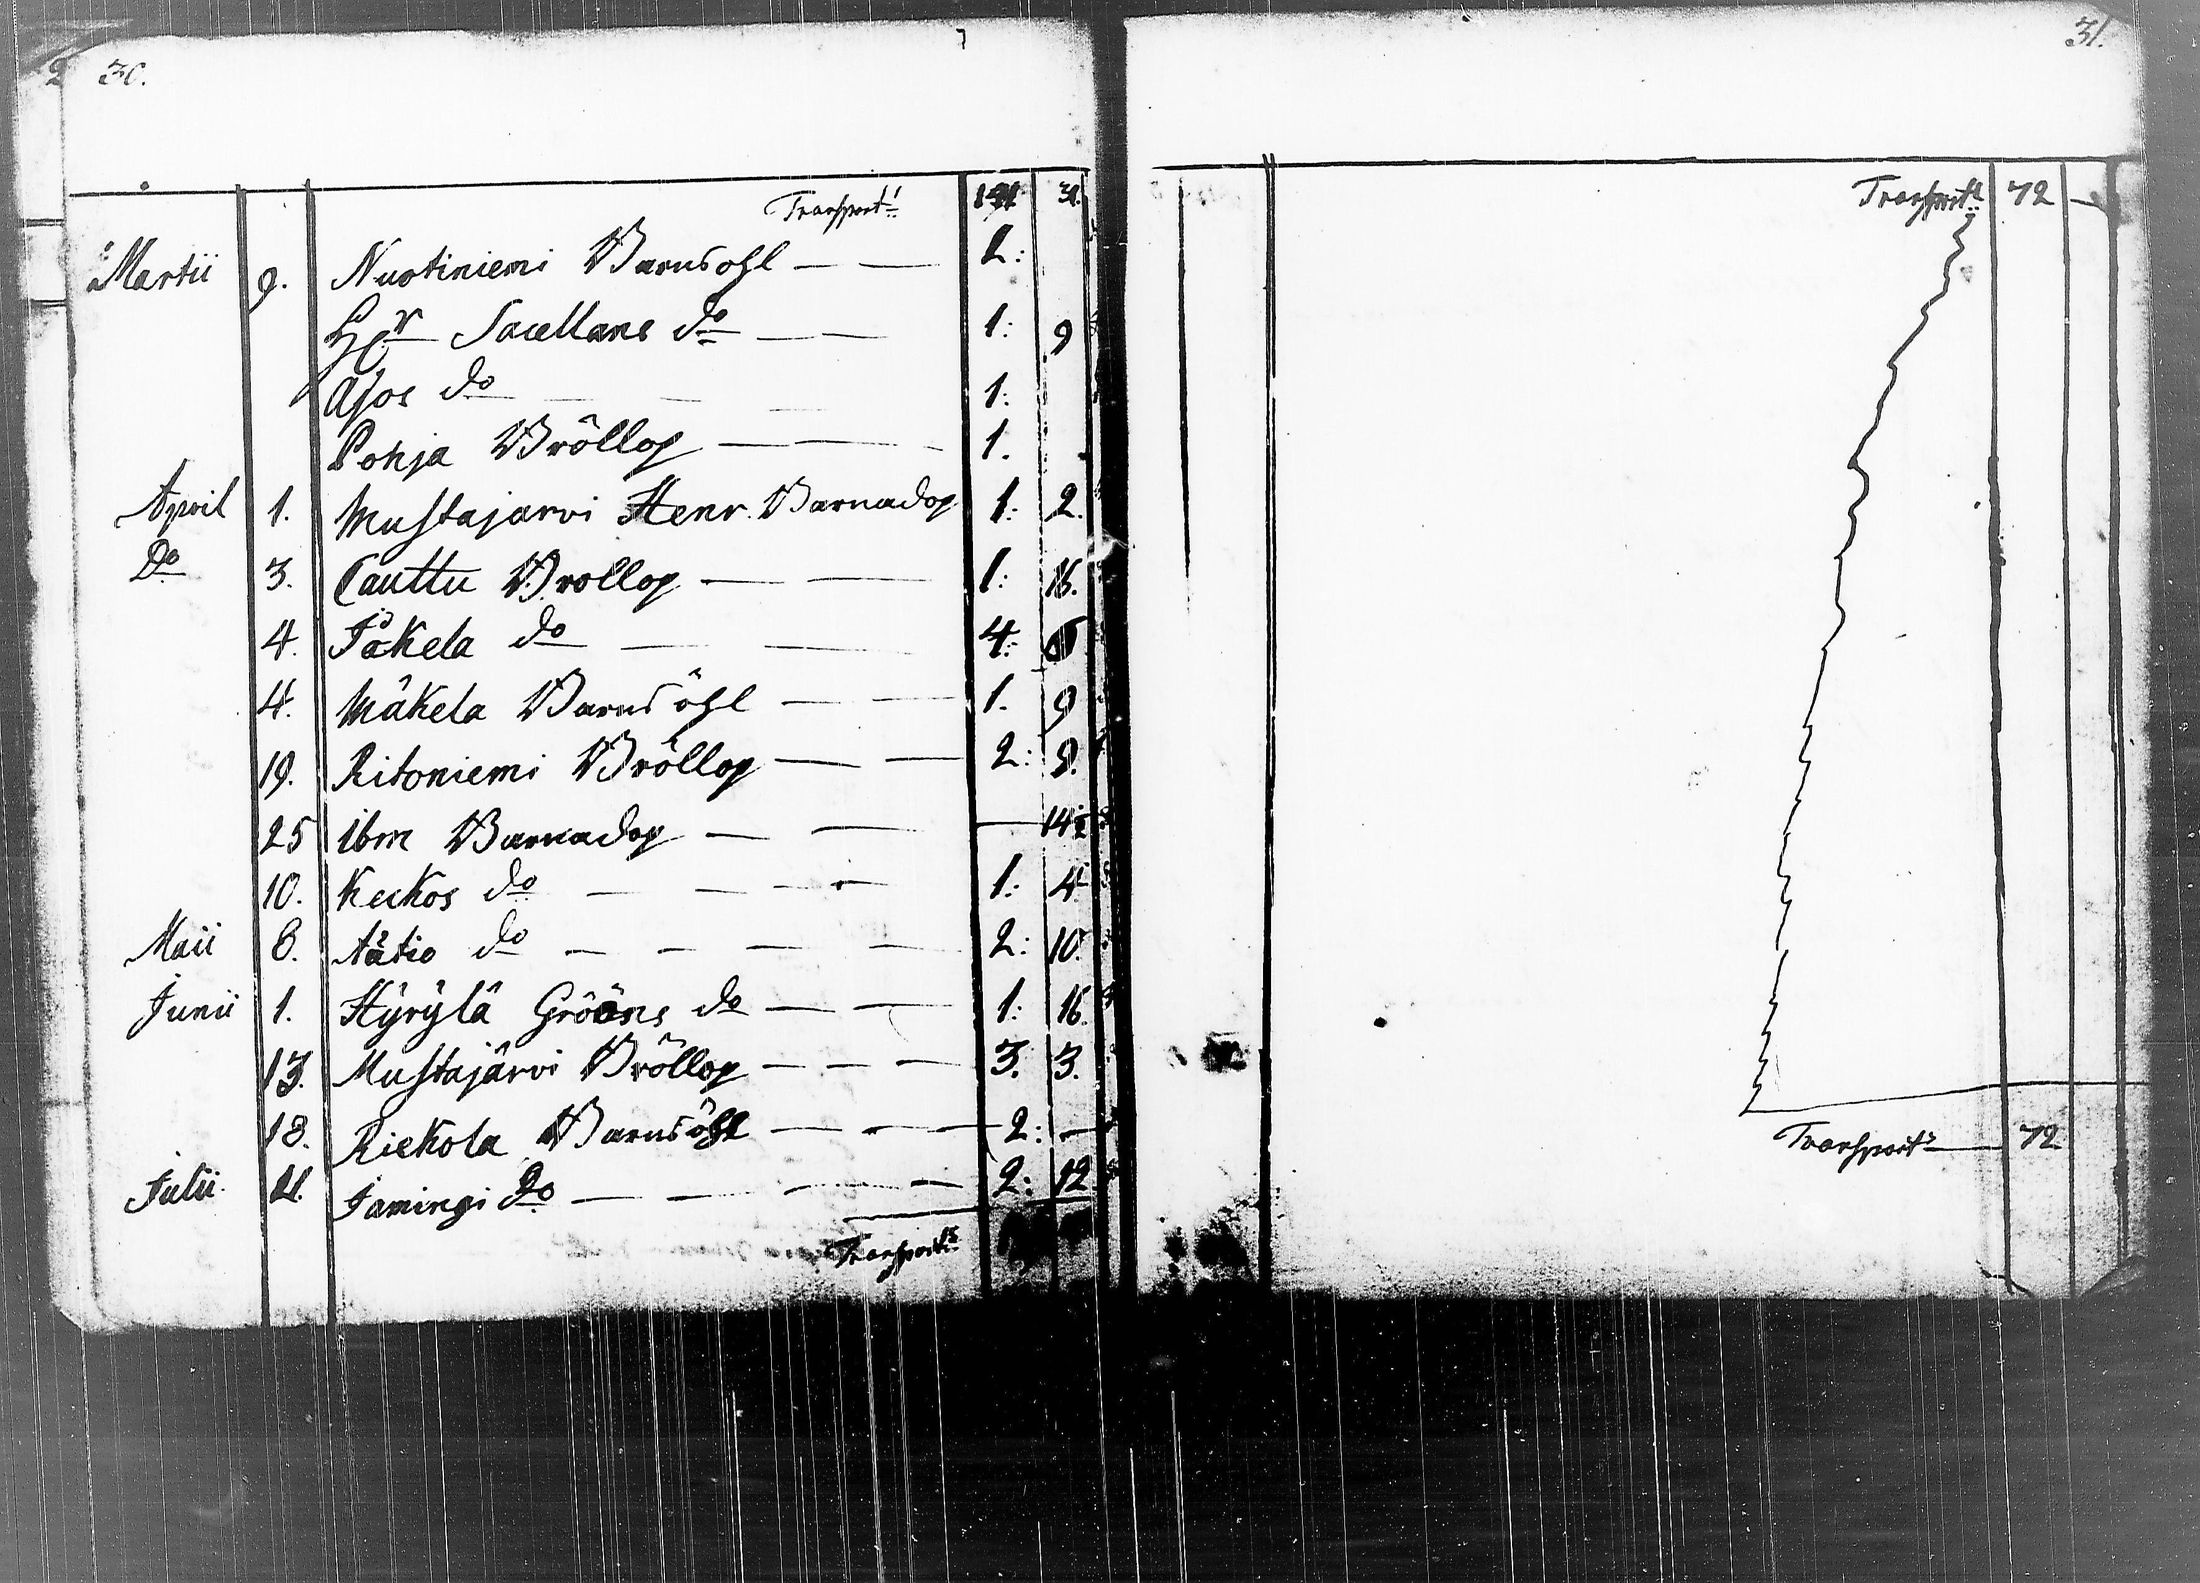 30.
Transport:
Martii 9. Nuotiniemi Barnsöhl — — 2:
Hr Sacellans do — — 1: 9
Asos do — — — 1:
Pohja Bröllop — — 1.
April 1. Mustajarvi Henr. Barnadop 1: 2.
Do 3. Cauttu Brollop — — 1: 16.
4. Jåkela do — — 4:
4. Mäkela Barnsöhl — — 1. 9
19. Ritoniemi Bröllop — — 2: 9.
25 ibm Barnadop — — 14
10. Keckos do — — — 1: 4
Maii 8. Aätio do — — — — 2: 10.
Junii 1. Hÿrÿlä Grööns do — — 1: 16.
13. Mustajärvi Bröllop — — — 3. 3.
18. Riekola Barnsöhl — — — 2: —
Julii 21. Jamingi Do — — — — 2: 12
Transport:
31.
Transport: 72 —
Transport: — 72